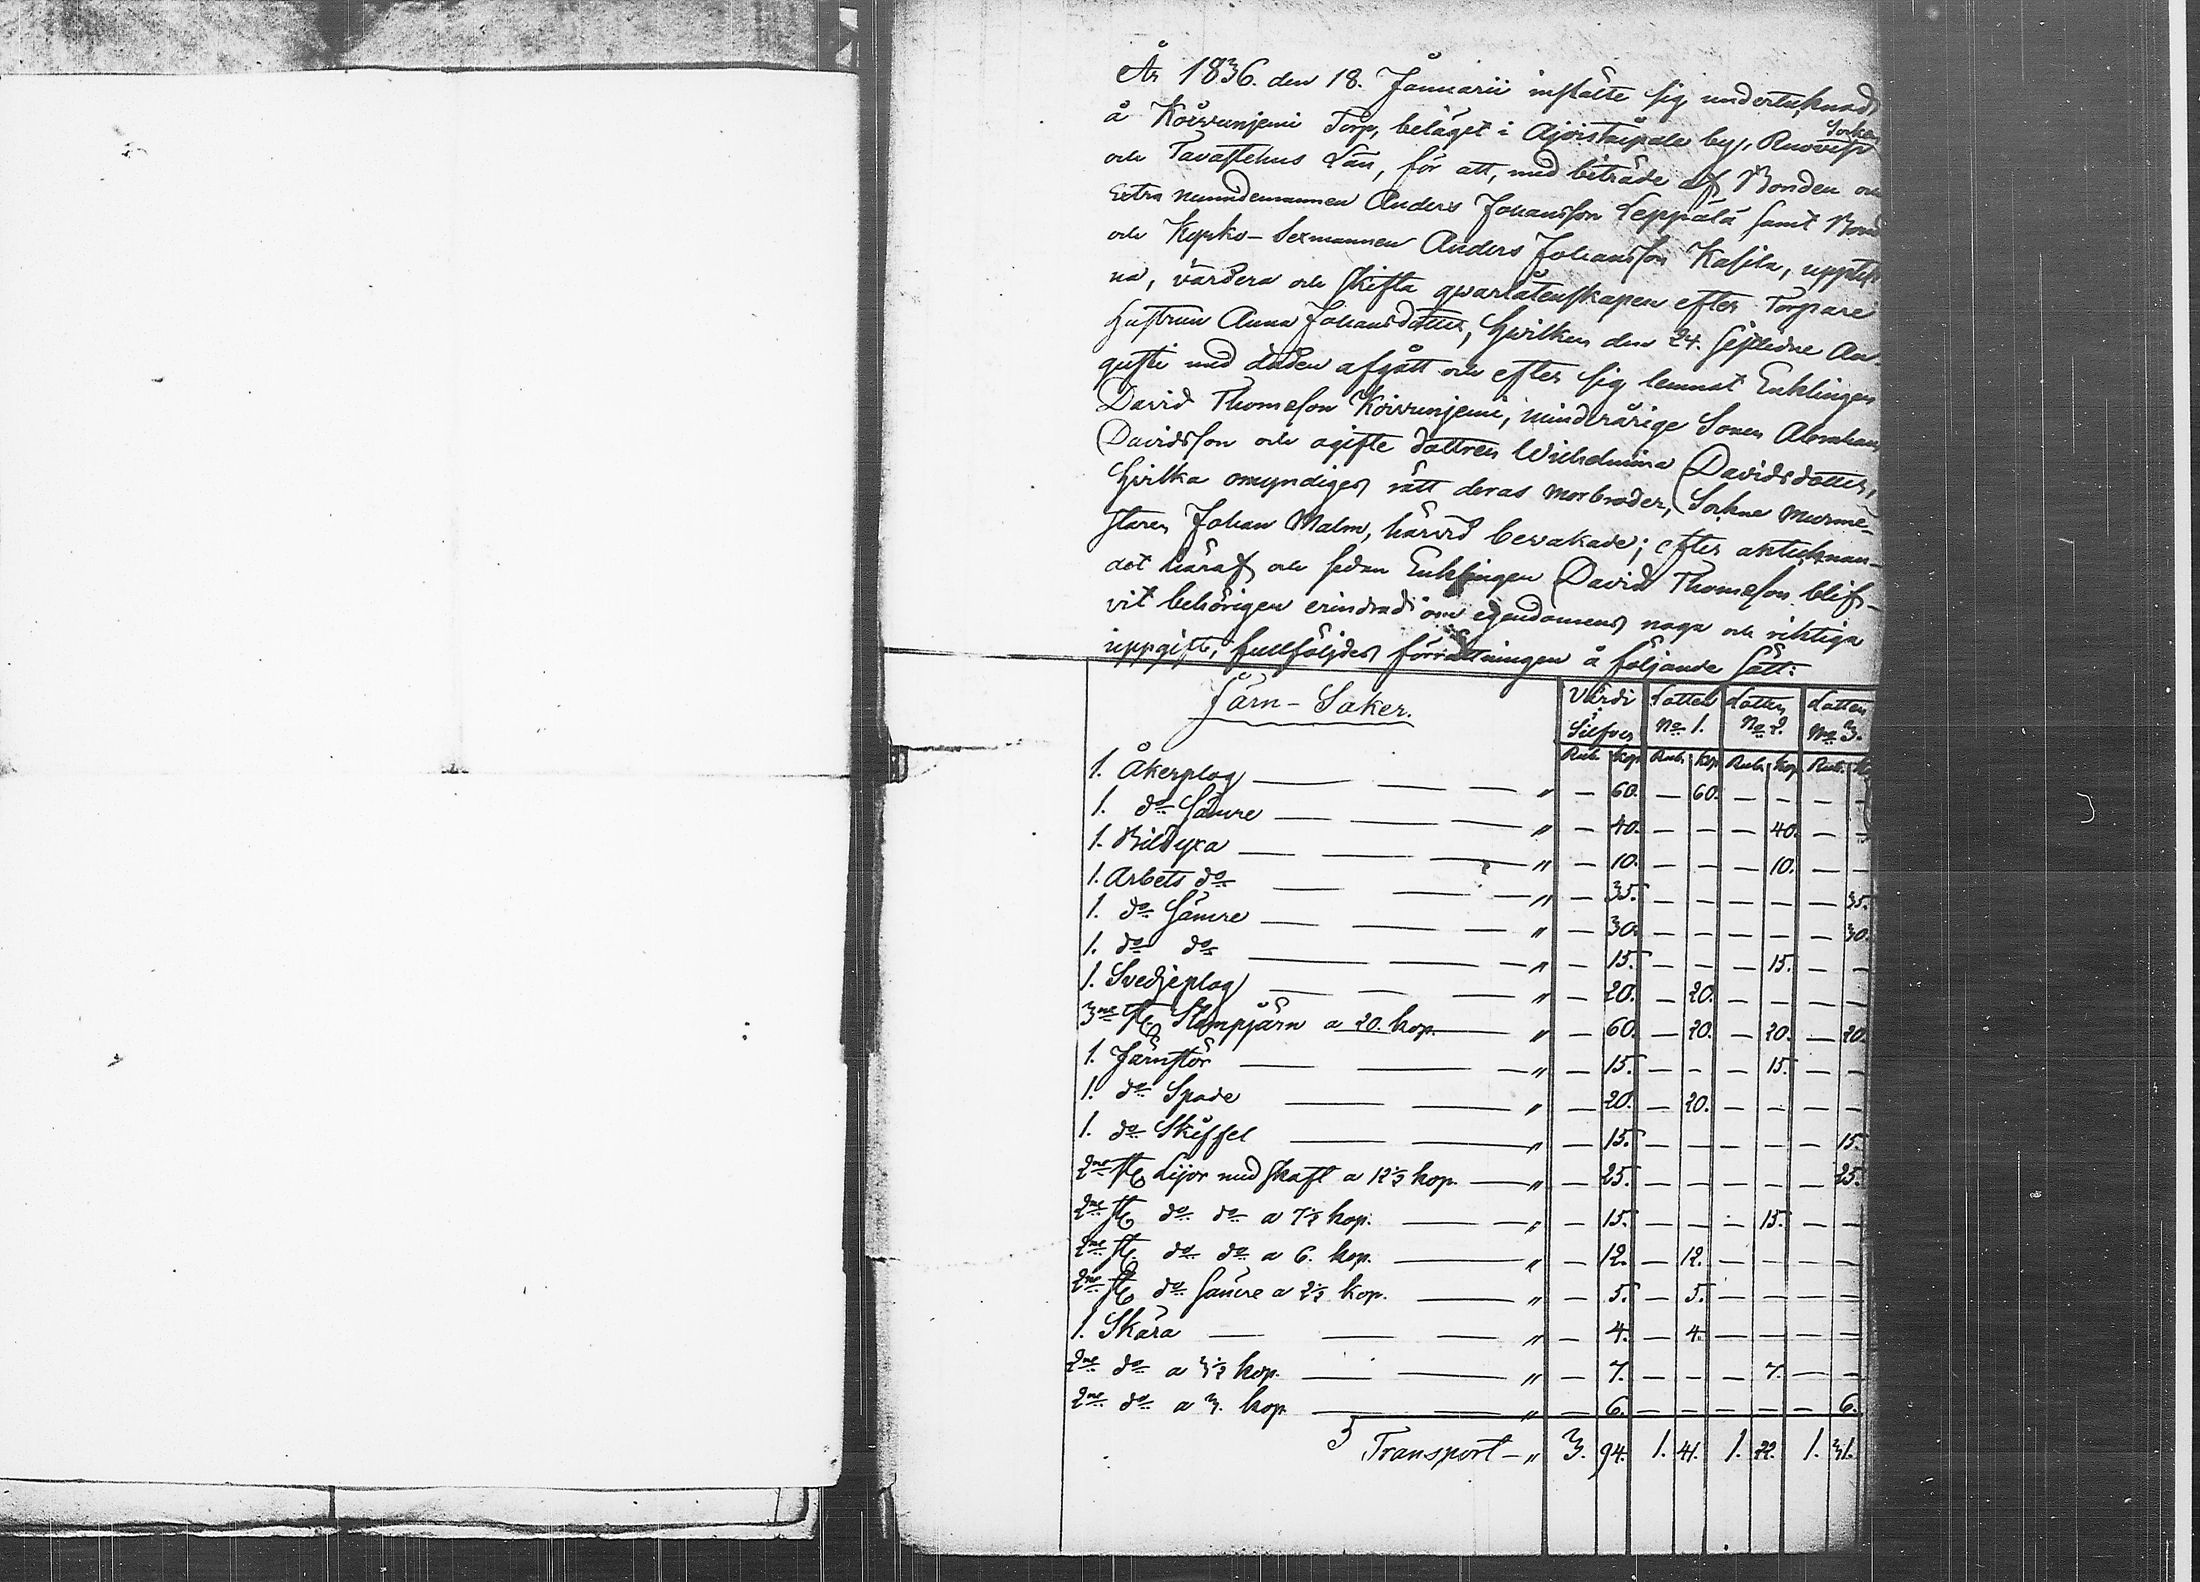 År 1836. den 18. Januarii instälte sig undertecknad,
å Koivunjemi Torp, beläget i Ajoistaipale by, Ruovesi Socken
och Tavastehus Län, för att, med biträde af Bonden och
Extra nämndemannen Anders Johansson Leppälä samt Bond
och Kyrko-Sexmannen Anders Johansson Kasila, uppteck
na, värdera och skifta qvarlåtenskapen efter Torpare
hustrun Anna Johansdotter, hvilken den 24. sistledne Au-
gusti med döden afgått och efter sig lemnat Enklingen
David Thomasson Koivunjemi, minderårige Sonen Abraham
Davidsson och ogifte dottren Wilhelmina Davidsdotter,
hvilka omyndiges rätt deras morbroder, Sockne Murmä-
staren Johan Malm, härvid bevakade; efter antecknan-
det häraf och sedan Enklingen David Thomasson blif-
vit behörigen erindrad om egendomens noga och riktiga
uppgift, fullföljdes förrättningen å följande sätt:
Järn-Saker. Värdi Silfver Lotten No 1. Lotten No 2. Lotten No 3.
Rub. Kop. Rub. Kop. Rub. Kop. Rub.
1. Åkerplog — — — " — 60. — 60. — — — —
1. do sämre — — — " — 40. — — — 40. — —
1. Bildyxa — — — " — 10. — — — 10. — —
1. Arbets do — — — " — 35. — — — — — 35.
1. do sämre — — — " — 30. — — — — — 30.
1. do do — — — " — 15. — — — 15. — —
1. Svedjeplog — — — " — 20. — 20. — — — —
3ne st. Stampjärn a 20. kop. — " — 60. — 20. — 20. — 20.
1. Järnstör — — — " — 15. — — — 15. — —
1. do Spade — — " — 20. — 20. — — — —
1. do Skåffel — — " — 15. — — — — — 15.
2ne st. Lijor med skaft a 12½ kop. — " — 25. — — — — — 25.
2ne st. do do a 7½ kop. — — " — 15. — — — 15. — —
2ne st. do do a 6. kop. — — " — 12. — 12. — — — —
2ne st. do sämre a 2½ kop. — — " — 5. — 5. — — — —
1. Skära — — — " — 4. — 4. — — — —
2ne do a 3½ kop. — — — " — 7. — — — 7. — —
2ne do a 3. kop. — — " — 6. — — — — — 6.
Transport — " 3. 94. 1. 41. 1. 22. 1. 31.